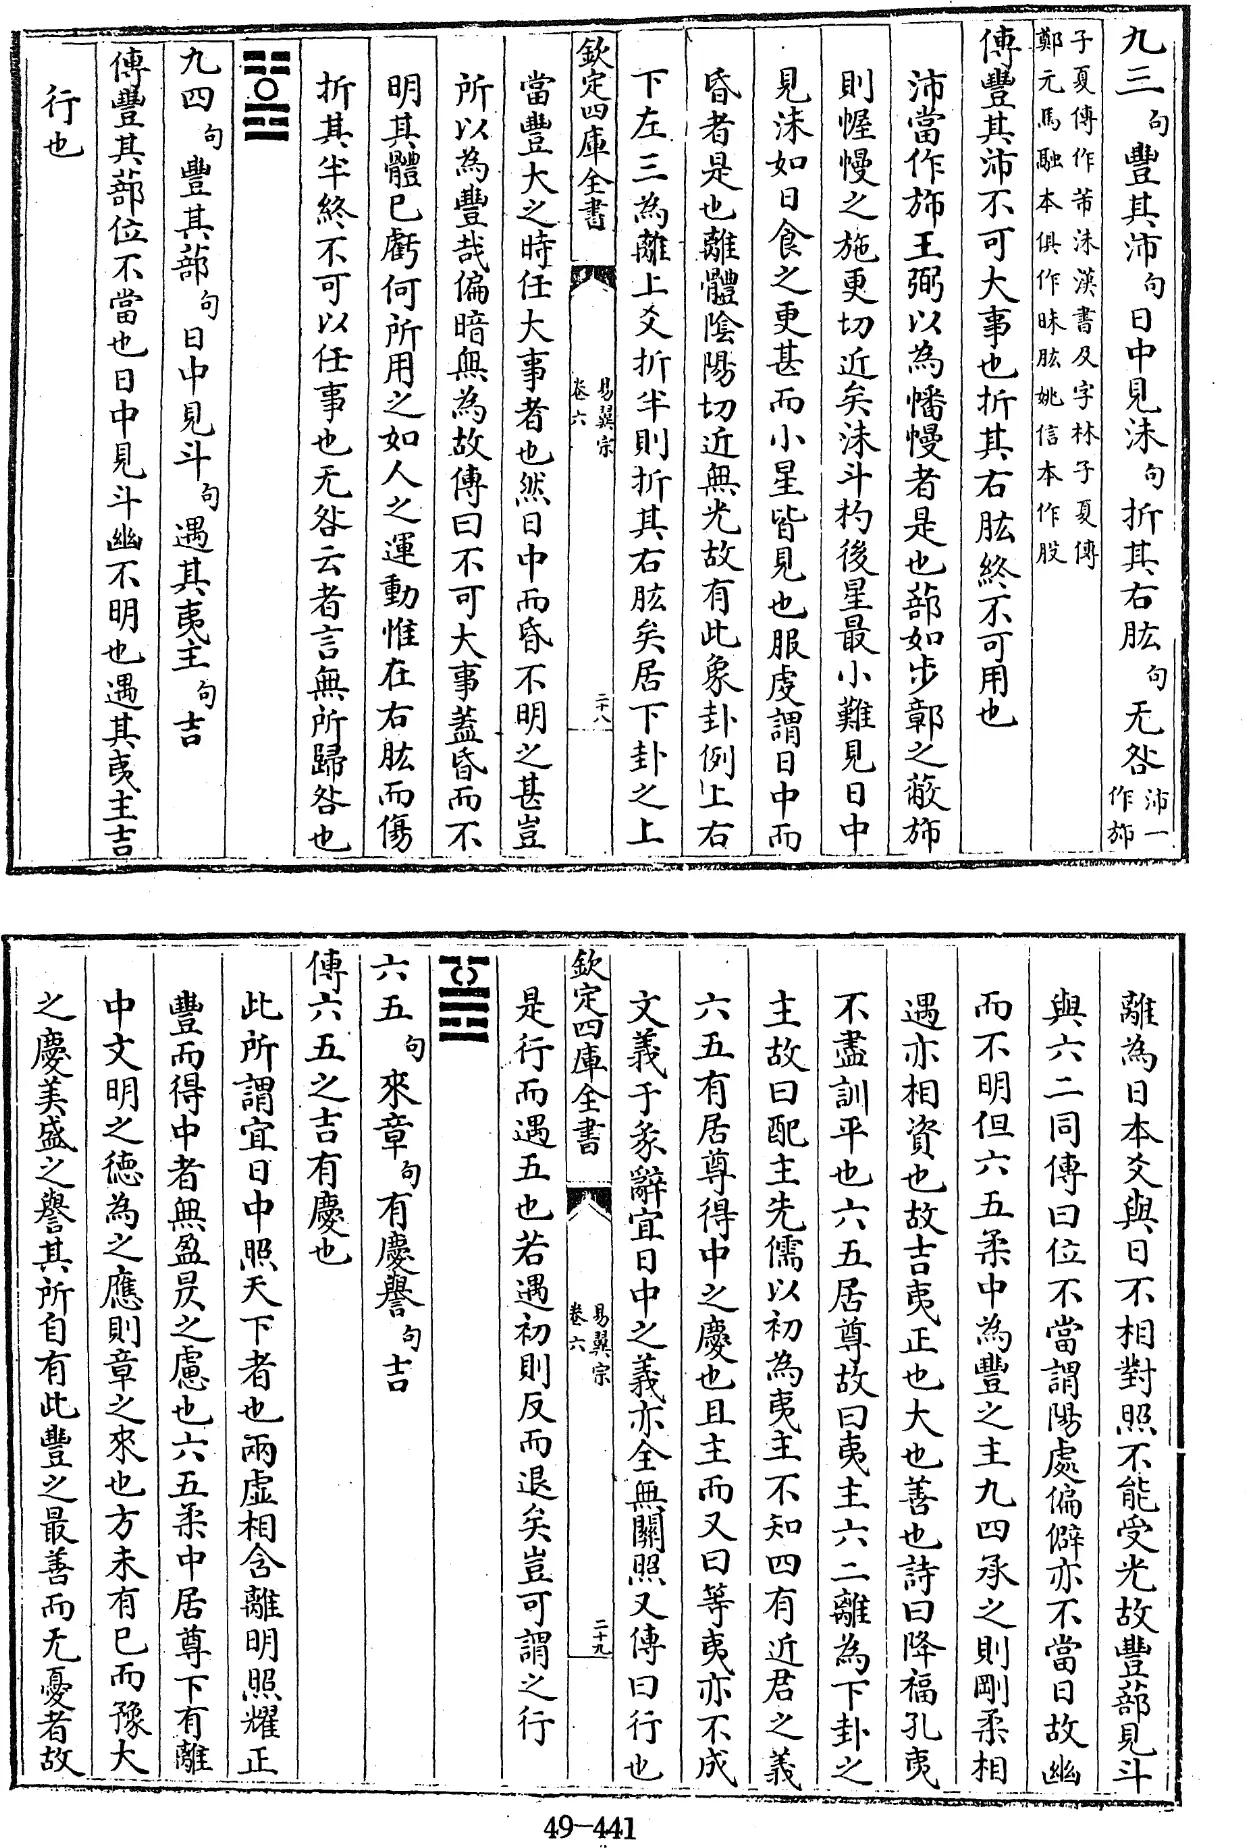 九三句豐其沛句日中見沬句折其右肱句无咎沛一作斾
子夏傳作芾沬漢書及字林子夏傳
鄭元馬融本俱作昧肱姚信本作股
傳豐其沛不可大事也折其右肱終不可用也
沛當作斾王弼以為幡幔者是也蔀如步鄣之蔽斾
則幄幔之施更切近矣沬斗杓後星最小難見日中
見沬如日食之更甚而小星皆見也服虔謂日中而
昏者是也離體陰陽切近無光故有此象卦例上右
下左三為離上爻折半則折其右肱矣居下卦之上
欽定四庫全書
易翼宗
卷六
二十八
當豐大之時任大事者也然日中而昏不明之甚豈
所以為豐哉偏暗無為故傳曰不可大事蓋昏而不
明其體已虧何所用之如人之運動惟在右肱而傷
折其半終不可以任事也无咎云者言無所歸咎也
九四句豐其蔀句日中見斗句遇其夷主句吉
傳豐其蔀位不當也日中見斗幽不明也遇其夷主吉
行也
離為日本爻與日不相對照不能受光故豐蔀見斗
與六二同傳曰位不當謂陽處偏僻亦不當日故幽
而不明但六五柔中為豐之主九四承之則剛柔相
遇亦相資也故吉夷正也大也善也詩曰降福孔夷
不盡訓平也六五居尊故曰夷主六二離為下卦之
主故曰配主先儒以初為夷主不知四有近君之義
六五有居尊得中之慶也且主而又曰等夷亦不成
文義于彖辭宜日中之義亦全無關照又傳曰行也
欽定四庫全書
易翼宗
卷六
二十九
是行而遇五也若遇初則反而退矣豈可謂之行
六五句來章句有慶譽句吉
傳六五之吉有慶也
此所謂宜日中照天下者也兩虛相含離明照耀正
豐而得中者無盈昃之慮也六五柔中居尊下有離
中文明之德為之應則章之來也方未有已而豫大
之慶美盛之譽其所自有此豐之最善而无憂者故
49-441